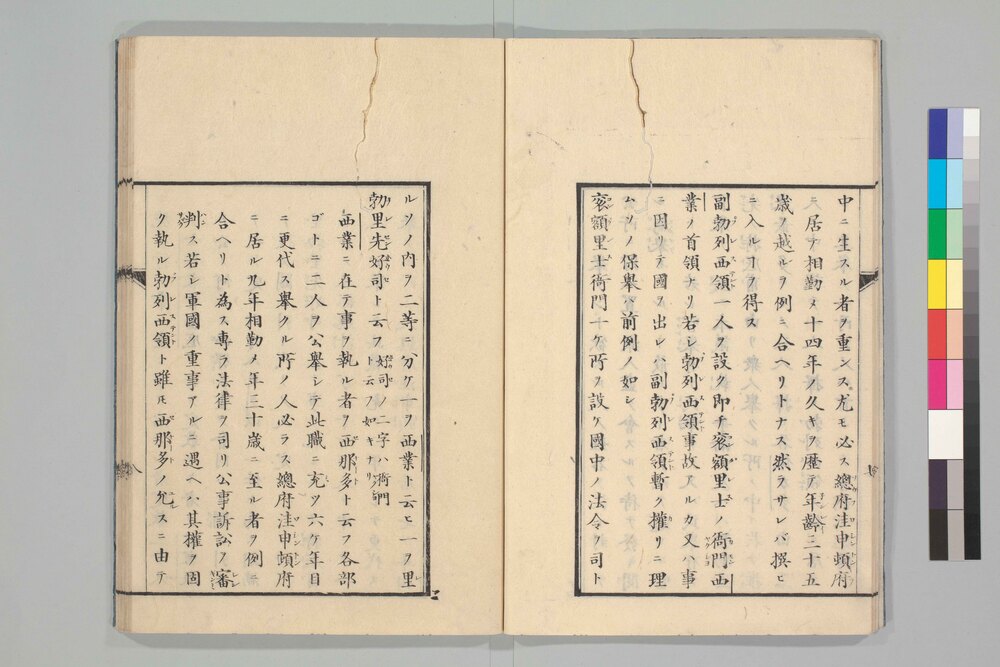 中ニ生スル者ヲ重ンス尤モ必ス總府洼申頓府
ニ居テ相勤メ十四年久キヲ歴テ年齡三十五
歳ノ越ルヲ例ニ合ヘリトナス然ラサレバ撰ヒ
ニ入ルヿヲ得ス
副勃列西領一人ヲ設ク即チ衮額里士ノ衙門西
業ノ首領ナリ若シ勃列西領事故アルカ又ハ事
ニ因リテ國ヲ出レハ副勃列西領暫ク權リニ理
ムソノ保舉ハ前例ノ如シ
衮額里士衙門一ケ所ヲ設ケ國中ノ法令ヲ司ト
ルソノ内ヲ二等ニ分ケ一ヲ西業ト云ヒ一ヲ里
勃里先好司ト云フ好司ノ二字ハ衙門ト云如キナリ
西業ニ在テ事ヲ執ル者ヲ西那多ト云フ各部
ゴトニ二人ヲ公舉シテ此職ニ充ツ六ケ年目
ニ更代ス舉クル所ノ人必ラス總府洼申頓府
ニ居ル九年相勤メ年三十歳ニ至ル者ヲ例ニ
合ヘリト為ス專ラ法律ヲ司リ公事訴訟ヲ審
判ス若シ軍國ノ重事アルニ遇ヘハ其權ヲ固
ク執ル勃列西領ト雖モ西那多ノ允スニ由テ